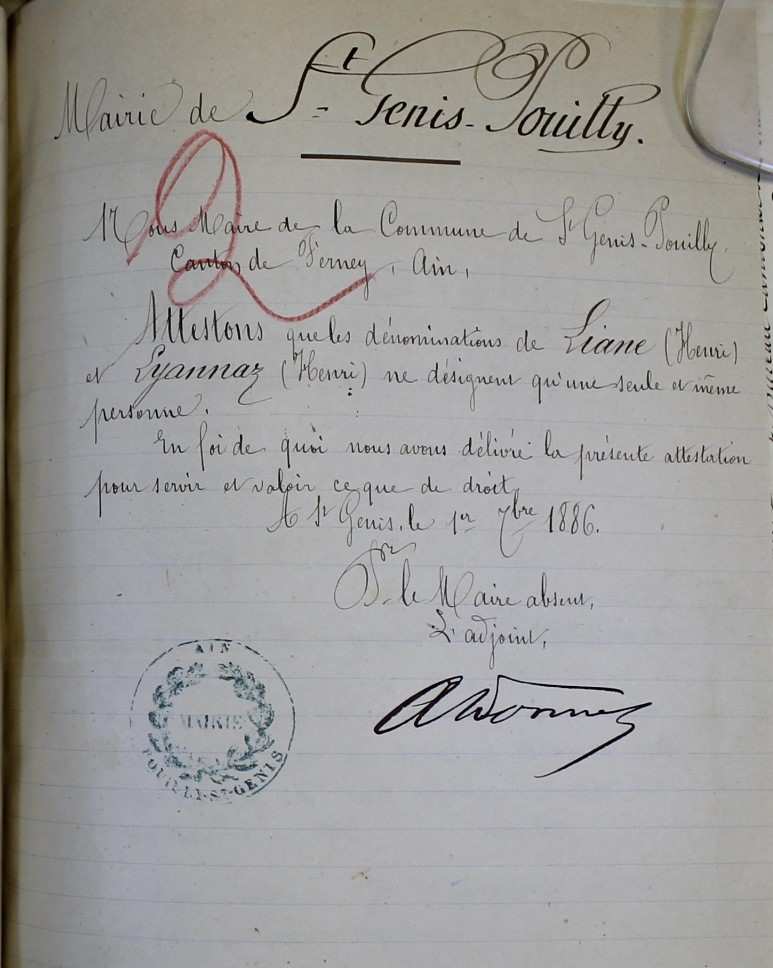 Mairie de St-Genis-Pouilly.
2
Nous Maire de la Commune de St Genis-Pouilly,
Canton de Ferney, Ain,
Attestons que les dénominations de Liane (Henri)
et Lyannaz (Henri) ne désignent qu'une seule et même
personne.
En foi de quoi nous avons délivré la présente attestation
pour servir et valoir ce que de droit.
A St Genis, le 1er 7bre 1886.
Pr le Maire absent,
L'adjoint,
AIN
MAIRIE
POUILLY-ST-GENIS